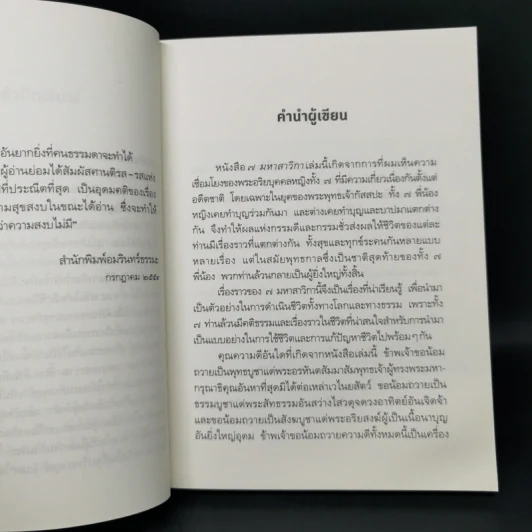 อันยากยิ่งที่คนธรรมดาจะทำได้
ผู้อ่านย่อมได้สัมผัสศานติรส-รสแห่ง
ที่ประณีตที่สุด เป็นอุดมคติของเรื่อง
ามสุขสงบในขณะได้อ่าน ซึ่งจะทำให้
ว่าความสงบไม่มี”
สำนักพิมพ์อมรินทร์ธรรมะ
กรกฎาคม ๒๕๕๑
คำนำผู้เขียน
หนังสือ ๗ มหาสาวิกา เล่มนี้เกิดจากการที่ผมเห็นความ
เชื่อมโยงของพระอริยบุคคลหญิงทั้ง ๗ ที่มีความเกี่ยวเนื่องกันตั้งแต่
อดีตชาติ โดยเฉพาะในยุคของพระพุทธเจ้ากัสสปะ ทั้ง ๗ พี่น้อง
หญิงเคยทำบุญร่วมกันมา และต่างเคยทำบุญและบาปมาแตกต่าง
กัน จึงทำให้ผลแห่งกรรมดีและกรรมชั่วส่งผลให้ชีวิตของแต่ละ
ท่านมีเรื่องราวที่แตกต่างกัน ทั้งสุขและทุกข์ระคนกันหลายแบบ
หลายเรื่อง แต่ในสมัยพุทธกาลซึ่งเป็นชาติสุดท้ายของทั้ง ๗
พี่น้อง พวกท่านล้วนกลายเป็นผู้ยิ่งใหญ่ทั้งสิ้น
เรื่องราวของ ๗ มหาสาวิกานี้จึงเป็นเรื่องที่น่าเรียนรู้ เพื่อนำมา
เป็นตัวอย่างในการดำเนินชีวิตทั้งทางโลกและทางธรรม เพราะทั้ง
๗ ท่านล้วนมีคติธรรมและเรื่องราวในชีวิตที่น่าสนใจสำหรับการนำมา
เป็นแบบอย่างในการใช้ชีวิตและการแก้ปัญหาชีวิตไปพร้อมๆ กัน
คุณความดีอันใดที่เกิดจากหนังสือเล่มนี้ ข้าพเจ้าขอน้อม
ถวายเป็นพุทธบูชาแด่พระอรหันตสัมมาสัมพุทธเจ้าผู้ทรงพระมหา-
กรุณาธิคุณอันหาที่สุดมิได้ต่อเหล่าเวไนยสัตว์ ขอน้อมถวายเป็น
ธรรมบูชาแด่พระสัทธรรมอันสว่างไสวดุจดวงอาทิตย์อันเจิดจ้า
และขอน้อมถวายเป็นสังฆบูชาแด่พระอริยสงฆ์ผู้เป็นเนื้อนาบุญ
อันยิ่งใหญ่อุดม ข้าพเจ้าขอน้อมถวายความดีทั้งหมดนี้เป็นเครื่อง